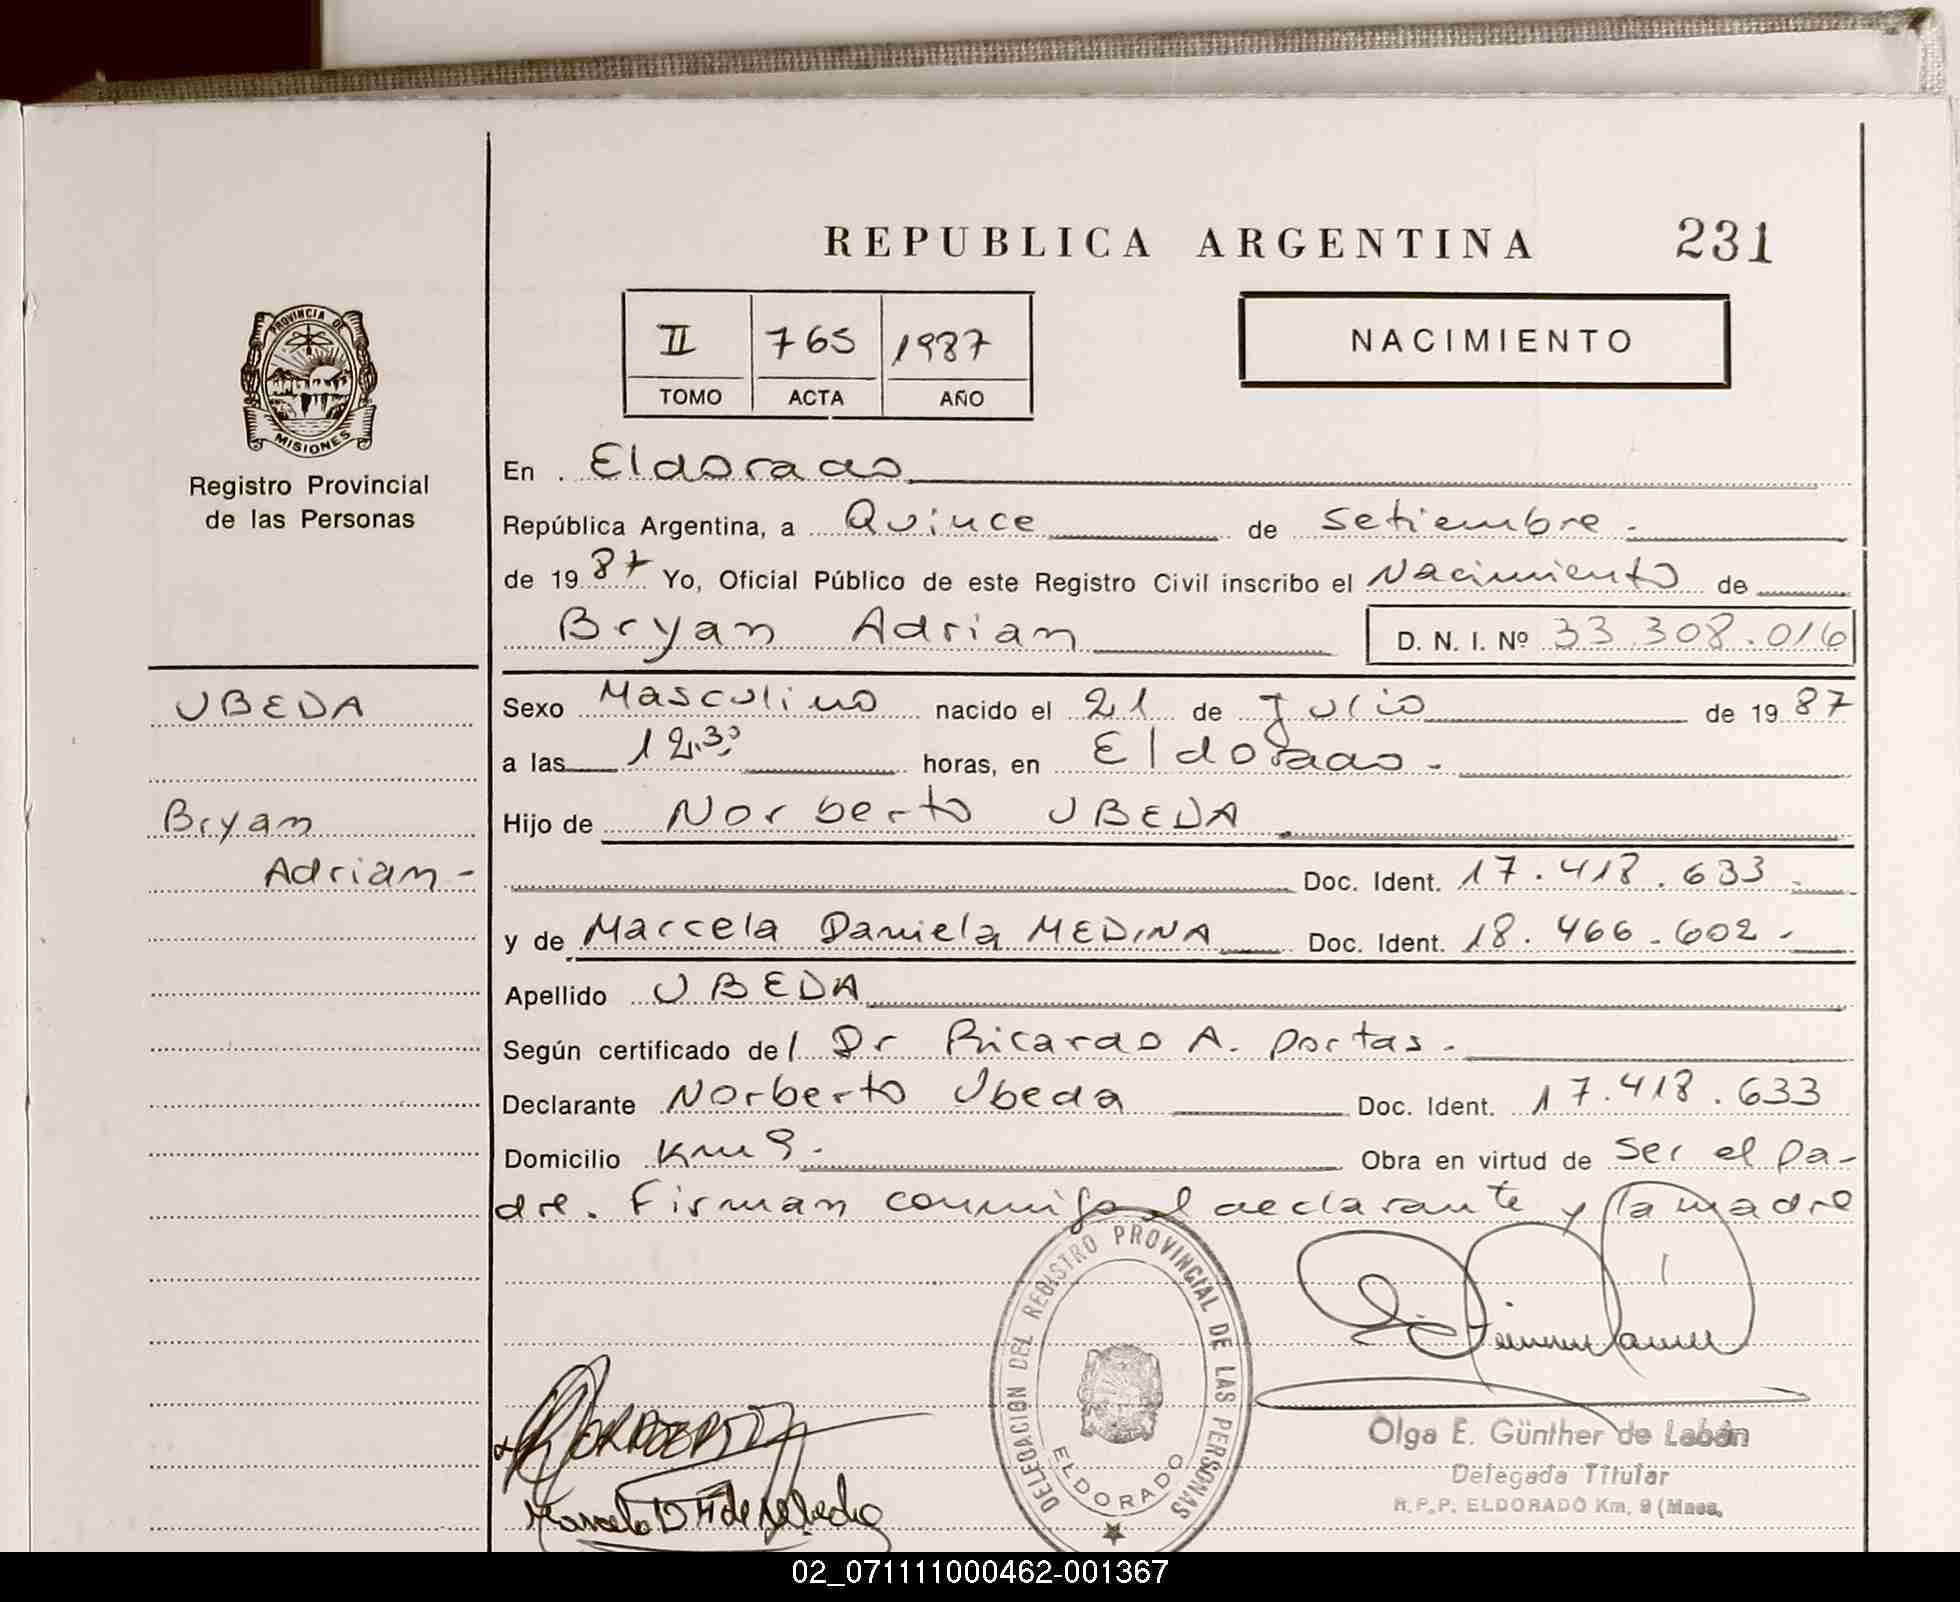 REPUBLICA ARGENTINA 231
II 765 1987
TOMO ACTA AÑO
NACIMIENTO
PROVINCIA DE
MISIONES
Registro Provincial
de las Personas
UBEDA
Bryan
Adrian -
En Eldorado
República Argentina, a Quince de Setiembre.
de 1987 Yo, Oficial Público de este Registro Civil inscribo el Nacimiento de
Bryan Adrian D. N. I. Nº 33.308.016
Sexo Masculino nacido el 21 de Julio de 1987
a las 12.30 horas, en Eldorado.
Hijo de Norberto UBEDA
Doc. Ident. 17.418.633
y de Marcela Daniela MEDINA Doc. Ident. 18.466.602.
Apellido UBEDA
Según certificado del Dr Ricardo A. Portas.
Declarante Norberto Ubeda Doc. Ident. 17.418.633
Domicilio Km 9. Obra en virtud de ser el pa-
dre. Firman conmigo el declarante y la madre
DELEGACION DEL REGISTRO PROVINCIAL DE LAS PERSONAS
ELDORADO
Olga E. Günther de Labán
Delegada Titular
R.P.P. ELDORADO Km. 9 (Mnes.
02_071111000462-001367